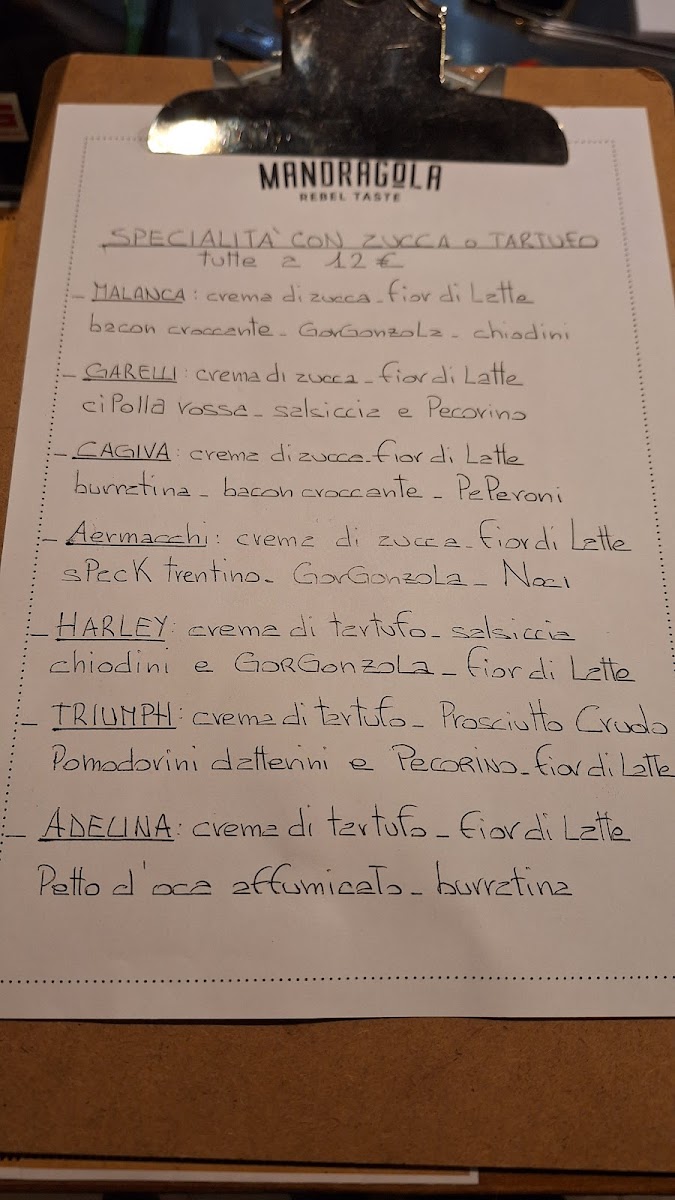 MANDRAGOLA
REBEL TASTE
SPECIALITA' CON ZUCCA o TARTUFO
tutte a 12 €
- MALANCA: crema di zucca - fior di Latte
bacon croccante - GorGonzola - chiodini
- GARELLI: crema di zucca - fior di Latte
ciPolla rossa - salsiccia e Pecorino
- CAGIVA: crema di zucca - fior di Latte
burratina - bacon croccante - PePeroni
- Aermacchi: crema di zucca - fior di Latte
sPecK trentino - GorGonzola - Noci
- HARLEY: crema di tartufo - salsiccia
chiodini e GORGonZOLA - fior di Latte
- TRIUMPH: crema di tartufo - Prosciutto Crudo
Pomodorini datterini e PECORINO - fior di Latte
- ADELINA: crema di tartufo - fior di Latte
Petto d'oca affumicato - burratina